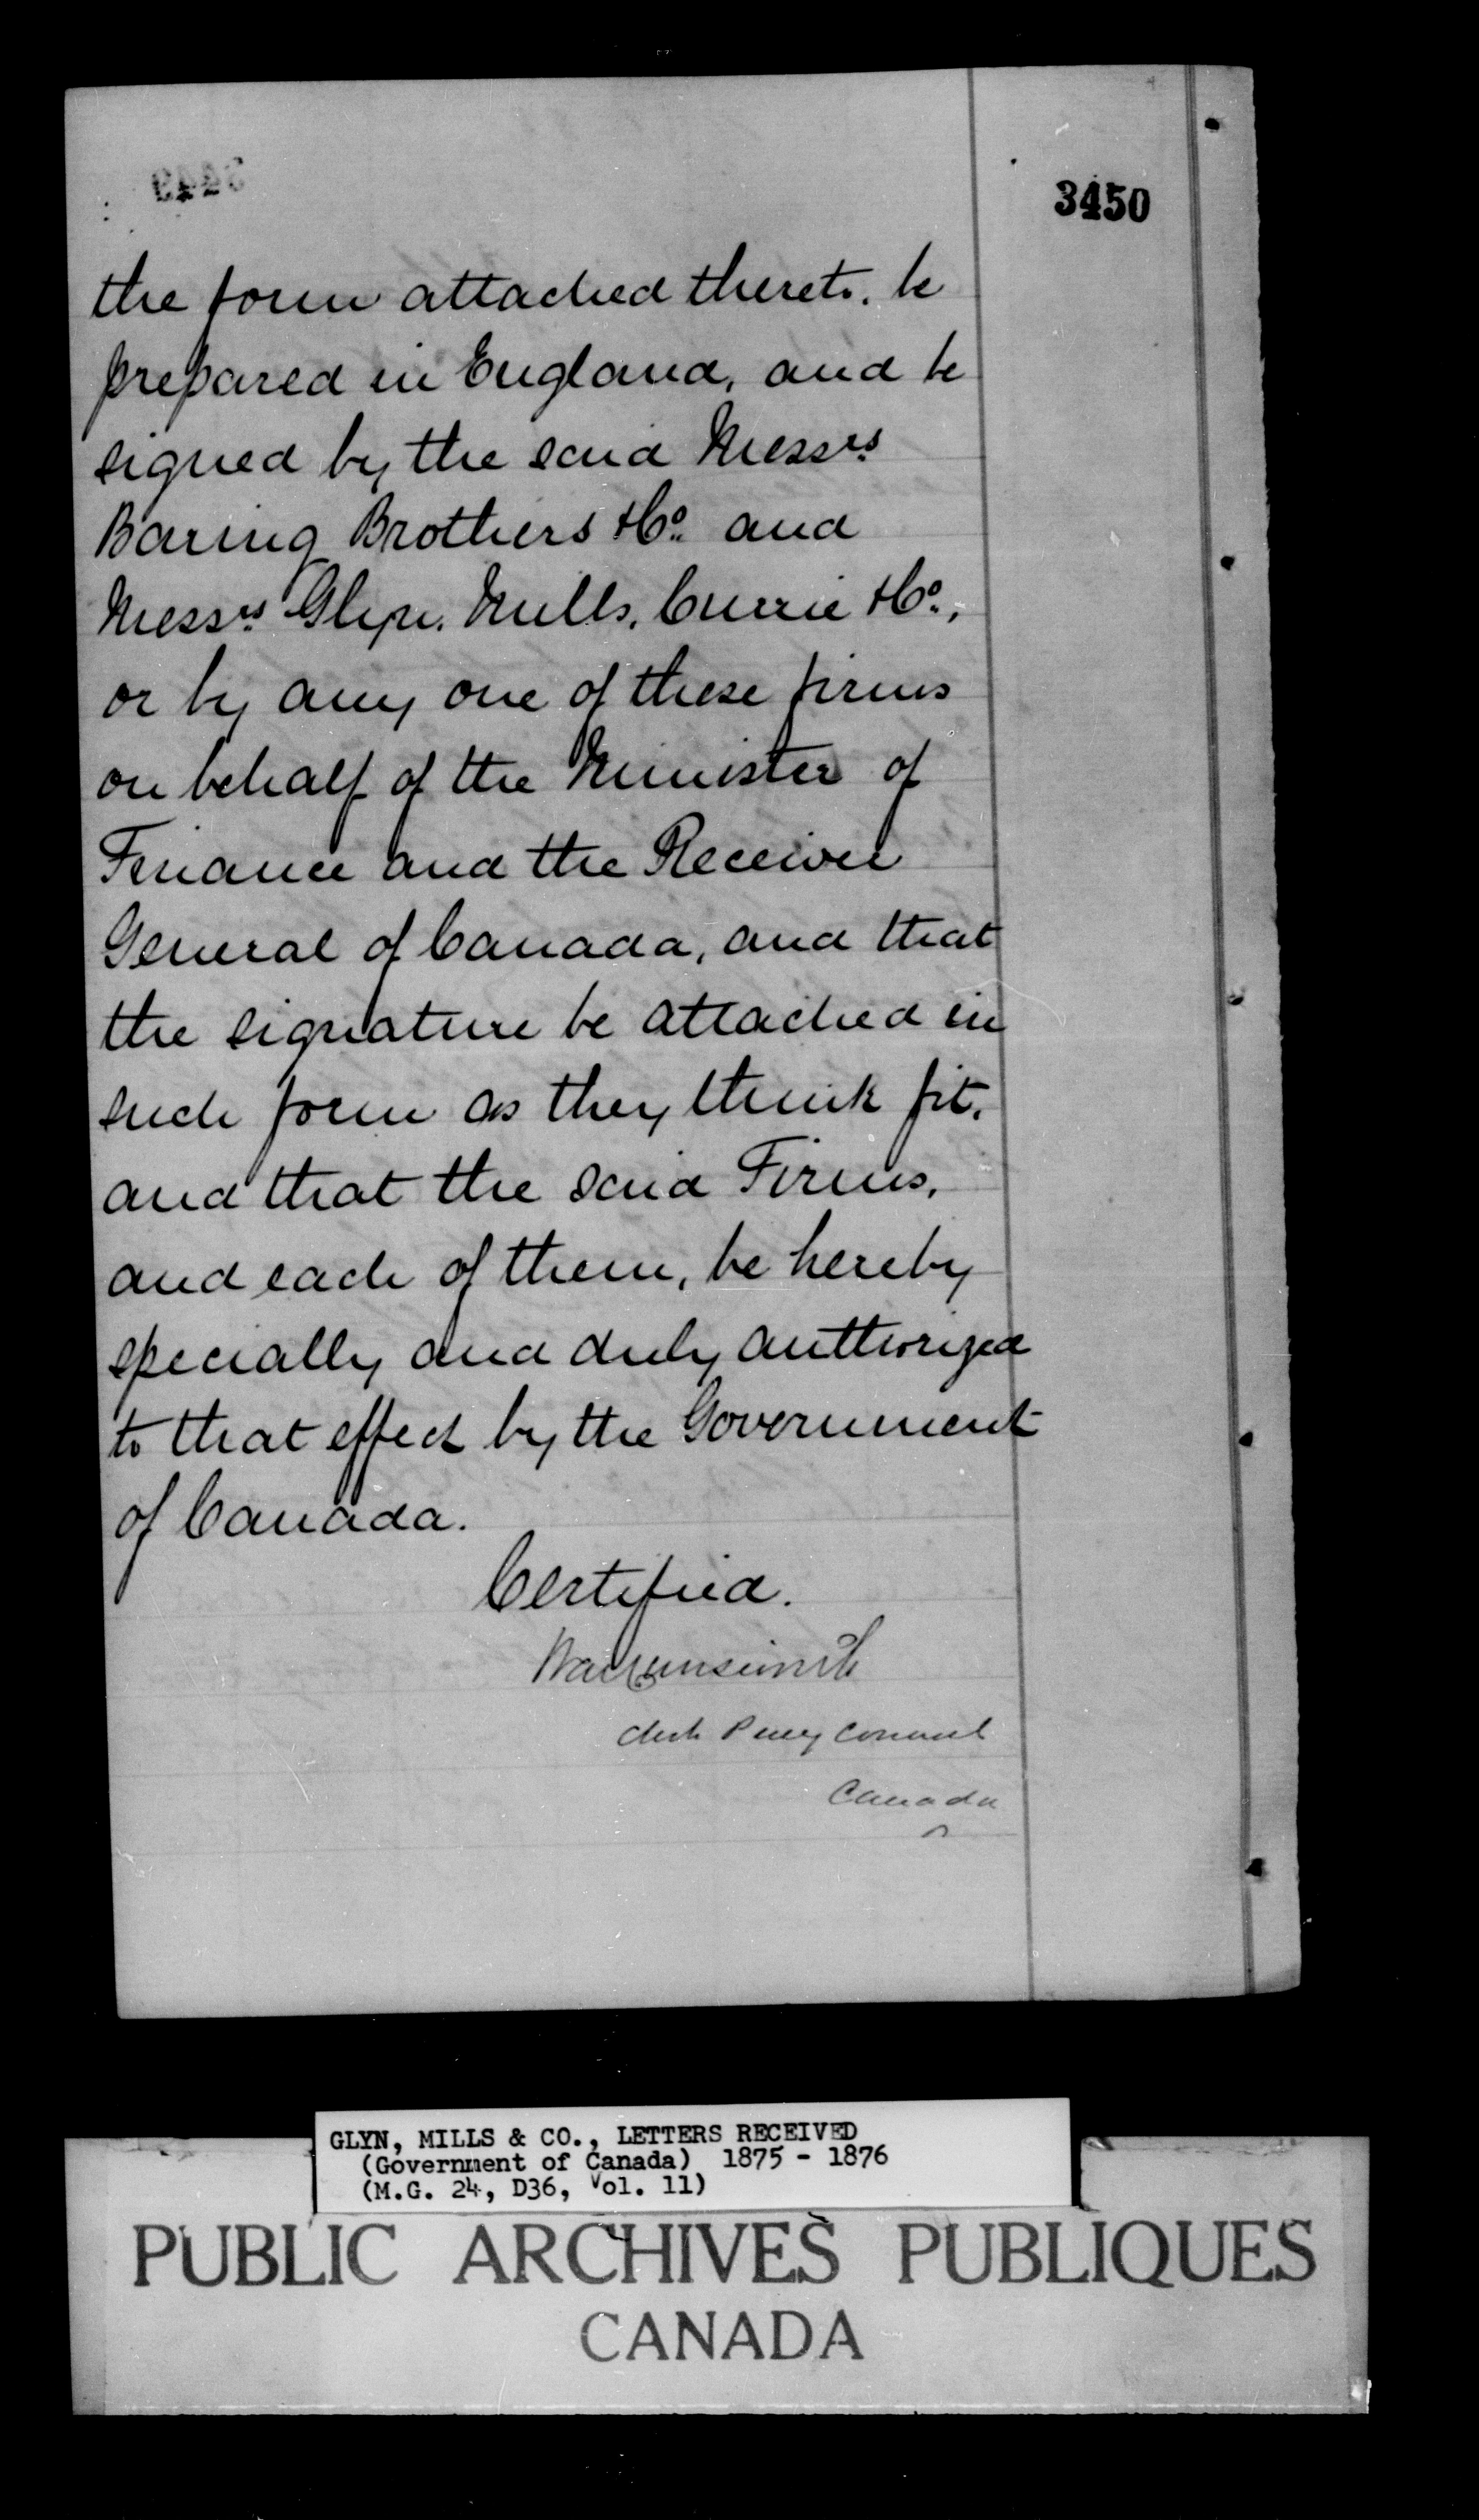 3450
the form attached thereto, be
prepared in England, and be
signed by the said Messrs
Baring Brothers & Co. and
Messrs Glyn, Mills, Currie & Co.,
or by any one of these firms
on behalf of the Minister of
Finance and the Receiver
General of Canada, and that
the signature be attached in
such form as they think fit,
and that the said Firms,
and each of them, be hereby
specially and duly authorized
to that effect by the Government
of Canada.
Certified.
Clerk Privy Council
Canada
GLYN, MILLS & CO., LETTERS RECEIVED
(Government of Canada) 1875 - 1876
(M.G. 24, D36, Vol. 11)
PUBLIC ARCHIVES PUBLIQUES
CANADA